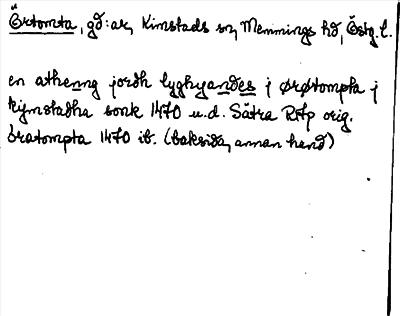 Örtomta, gd: ar, Kimstads sn, Memmings hd, Östg. l.
en athenng jordh lyghyandes j ørøtompta j
kijmstadha sonk 1470 u.d. Sätra RAp orig.
Oratompta 1470 ib. (baksida, annan hand)